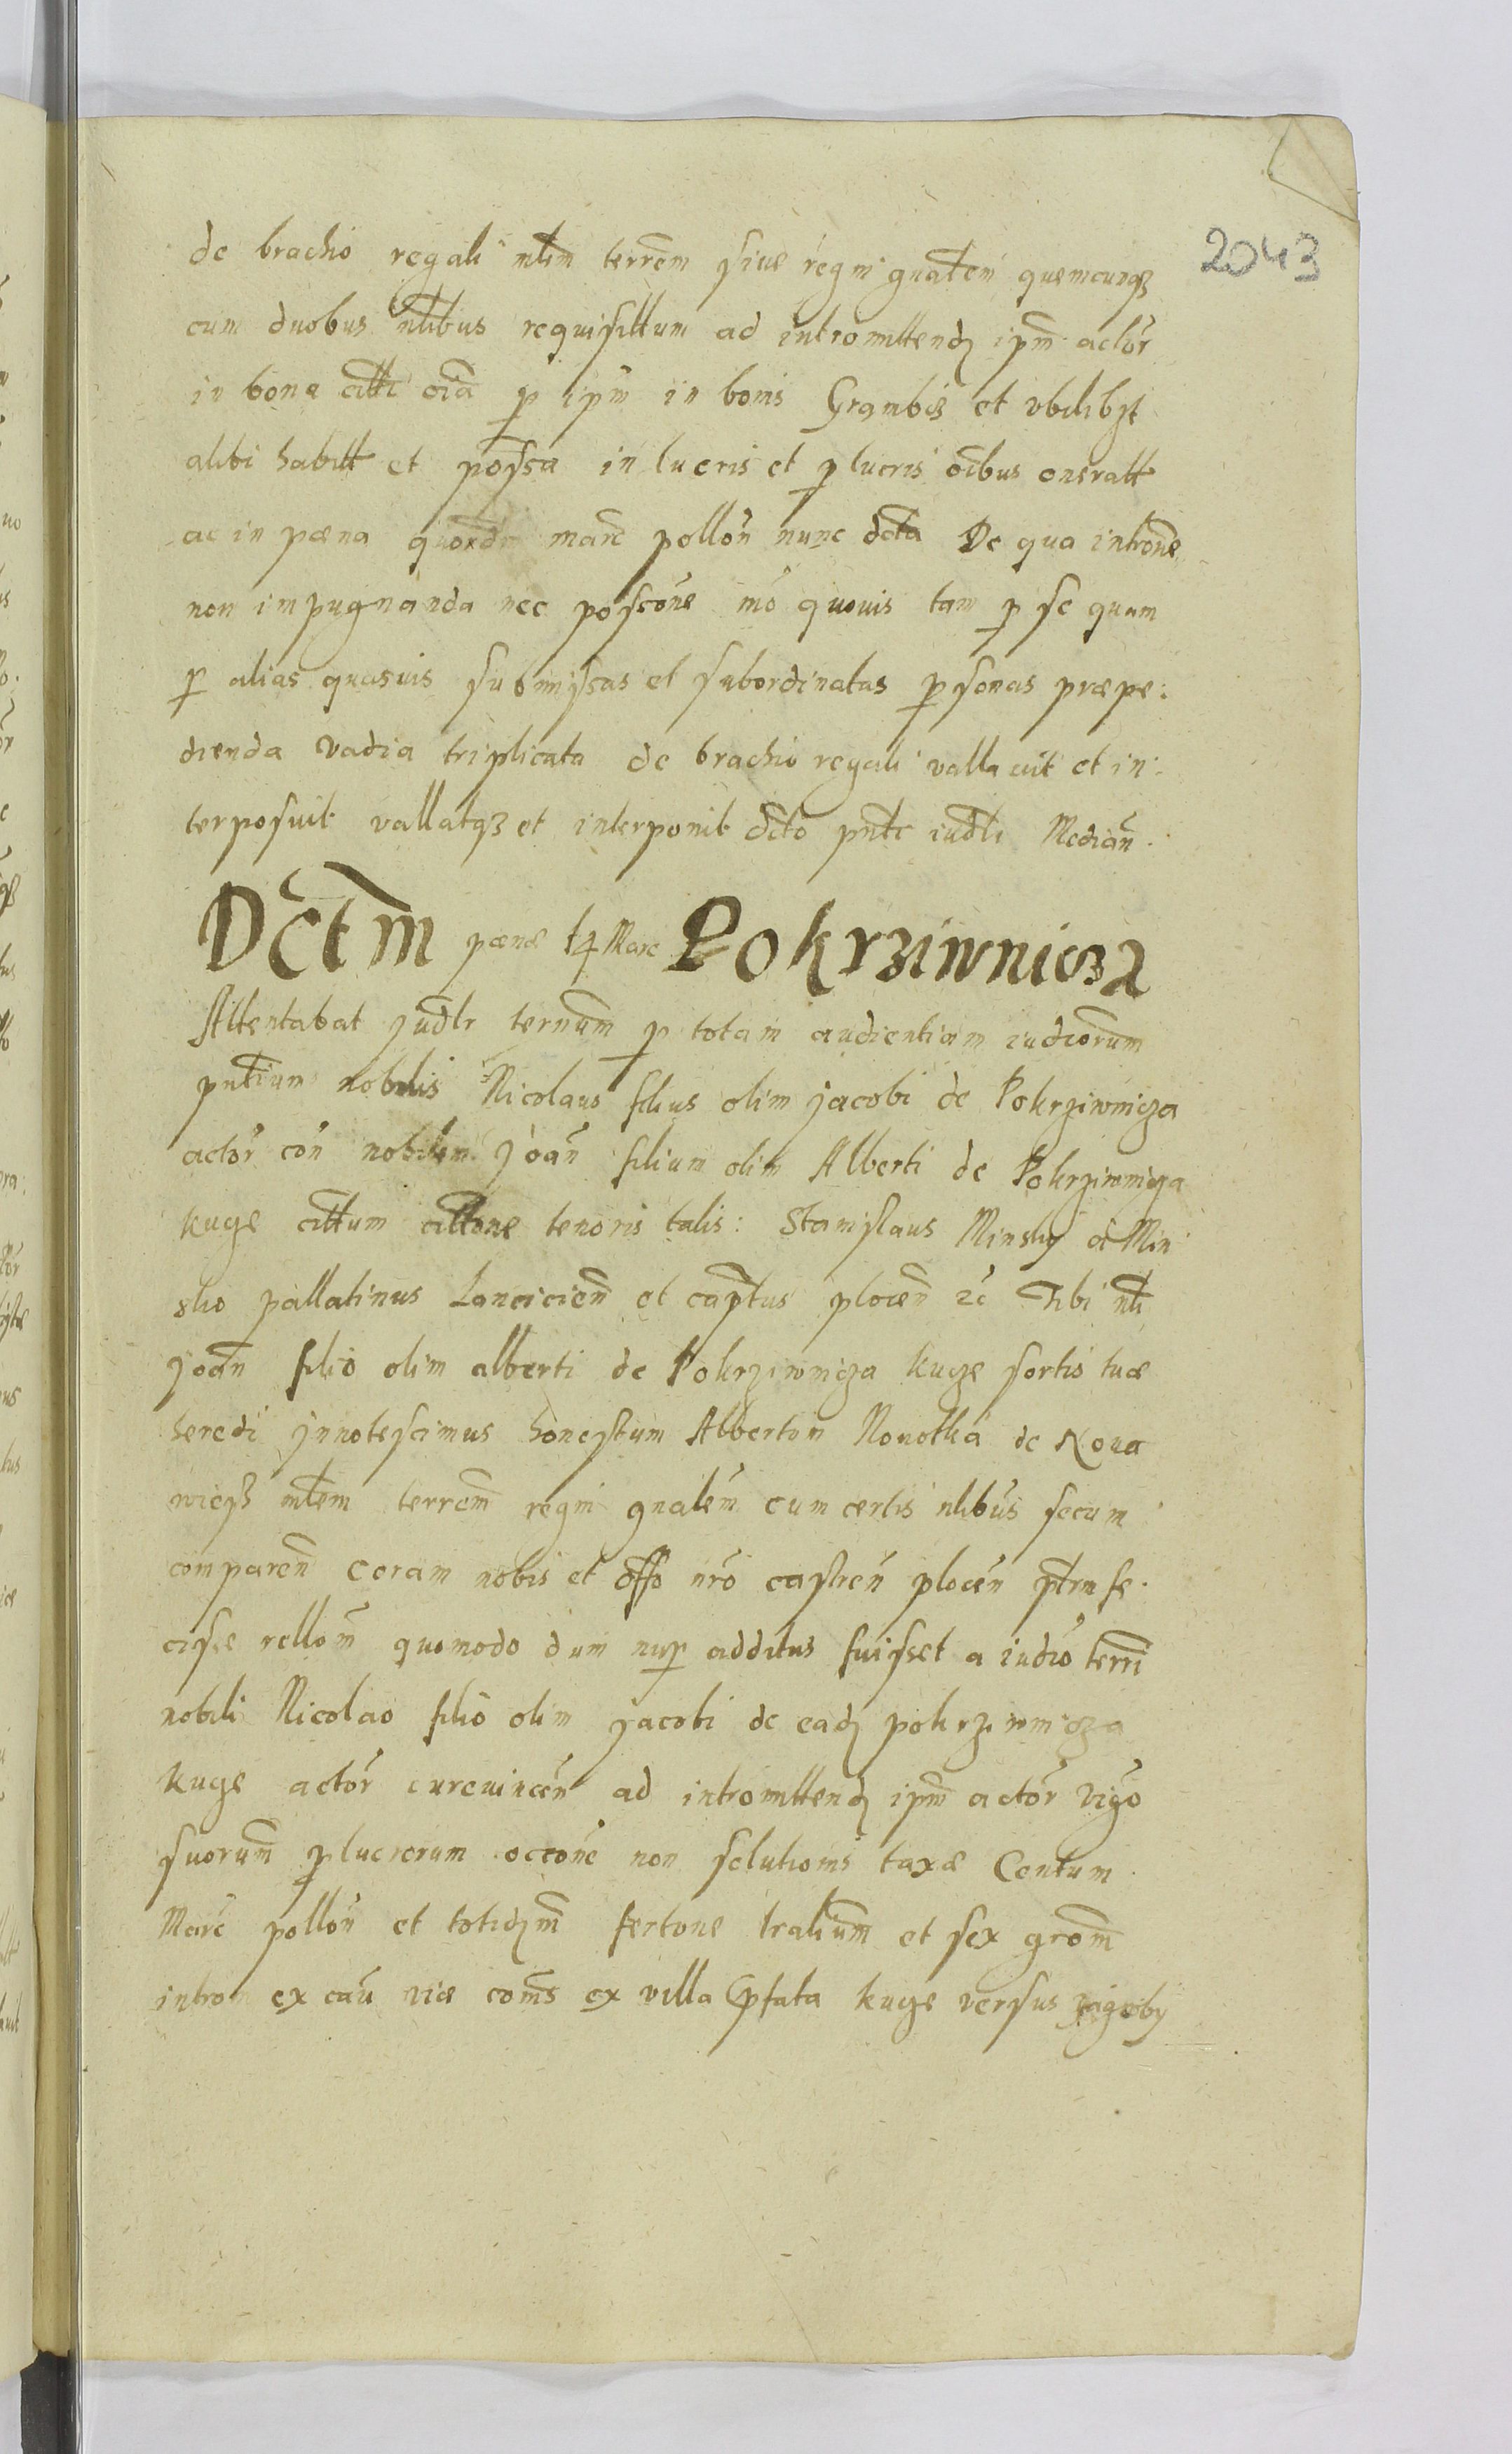 2043
de brachio regali mlem terrem siue regni gnalem quemcunqz
cum duobus nlibus requisittum ad intromittendz ipm actor
in bona citti oia p ipm in bonis Grambiz et vbilibzt
alibi habitt et possa in lucris et p lucris oibus oneratt
ac in pæna quord marc pollon nunc dcta De qua introne
non impugnanda nec poscone mo quouis tam p se quam
p alias quasuis submissas et subordinatas psonas præpe:
dienda vadia triplicata de brachio regali vallauit et in:
terposuit vallatqz et interponit dcto pnte iudli Median.
Dctm pænæ 14 Marc Pokrziwnicza
Attentabat judlr ternum p totam audientiam iudiorum
pntium nobilis Nicolaus filius olim jacobi de Pokrziwnicza
actor con nobilem Joan filium olim Alberti de Pokrziwnicza
kuge cittum cittone tenoris talis: Stanislaus Minsky a Min
sko pallatinus Lanciciem et captus plocen zc Tibi nli
joan filio olim alberti de Pokrziwnicza kuge sortis tuæ
heredi jnnotescimus honestum Albertum Nonotka de Noua
wiesz mlem terrem regni gnalem cum certis nlibus secum
comparen coram nobis et offo nro castren plocen ptrm fe.
cisse rellom quomodo dum nup additus fuisset a iudio terri
nobili Nicolao filio olim jacobi de eadz pokrziwnicza
kuge actor eurevincen ad intromittendz ipm actor vigo
suorum plucrorum occone non solutionis taxæ Centum
Marc pollon et totidzm fertone tralium et sex grom
introm ex cau viæ coms ex villa pfata kuge versus